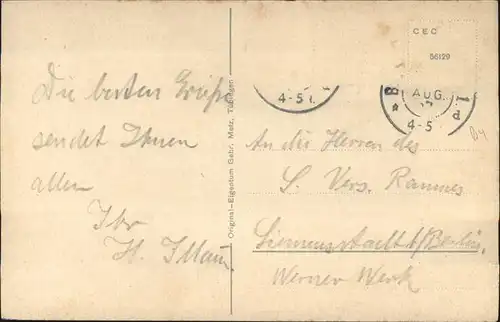 Die besten Grüße
sendet Ihnen
allen
Ihr
H.
Original-Eigentum Gebr. Metz, Tübingen
CEC
56129
4-5
B
AUG.
4-5
An die Herren des
S. Vers. Raumes
Siemensstadt b/Berlin.
Werner Werk